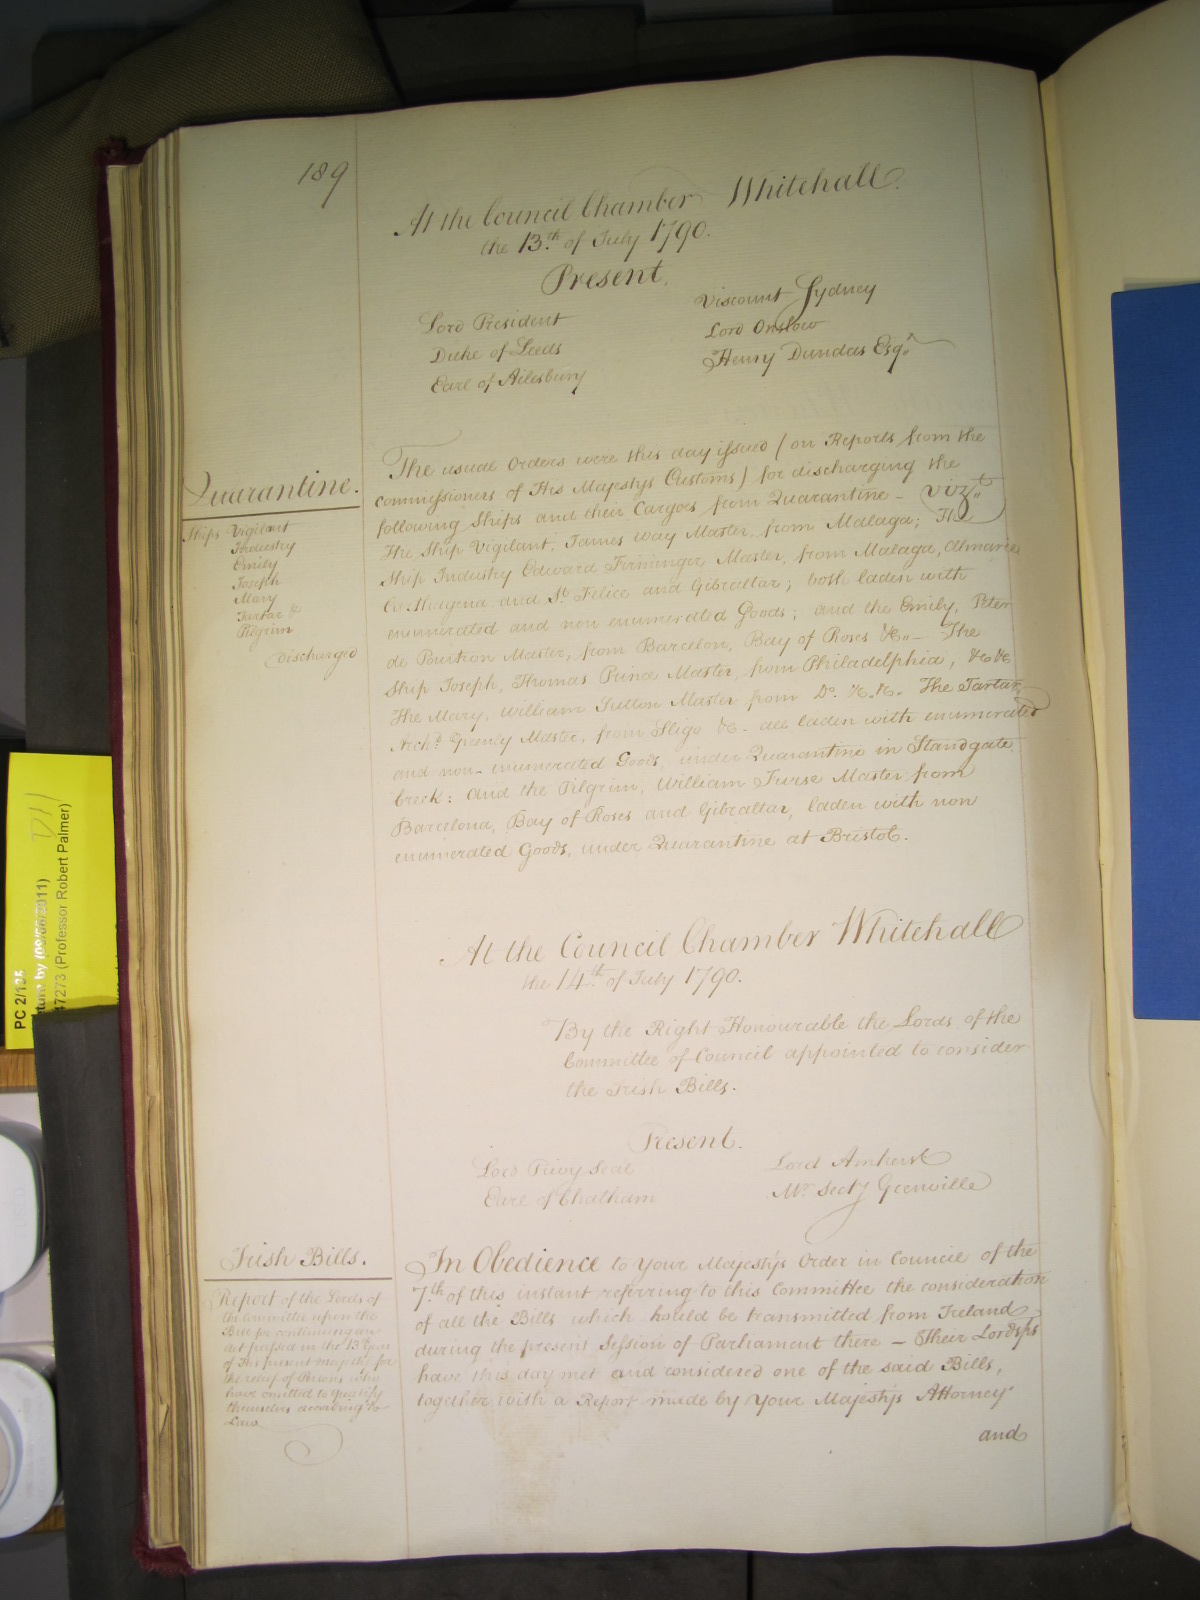 189
At the Council Chamber Whitehall.
the 13.th of July 1790.
Present.
Lord President
Duke of Leeds
Earl of Ailesbury
Viscount Sydney
Lord Onslow
Henry Dundas Esqr.
Quarantine.
Ships Vigilant
Industry
Emily
Joseph
Mary
Tartar &
Pilgrim
discharged
The usual Orders were this day issued (on Reports from the
commissioners of His Majestys Customs) for discharging the
following Ships and their Cargoes from Quarantine - vizt.
The Ship Vigilant, James Way Master, from Malaga; The
Ship Industry Edward Firminger Master, from Malaga, Almaria
Carthagena and St. Felice and Gibraltar; both laden with
enumerated and non enumerated Goods; and the Emily, Peter
de Master, from Barcelon, Bay of Roses &c. - The
Ship Joseph, Thomas Master, from Philadelphia, &c &c
The Mary, William Sutton Master from Do. &c. &c. The Tartar,
Archd. Master, from Sligo &c. all laden with enumerated
and non-enumerated Goods, under Quarantine in Standgate
Creek: and the Pilgrim, William Furse Master from
Barcelona, Bay of Roses and Gibraltar, laden with non
enumerated Goods, under Quarantine at Bristol.
At the Council Chamber Whitehall
the 14.th of July 1790.
By the Right Honourable the Lords of the
Committee of Council appointed to consider
the Irish Bills.
Present.
Lord Privy Seal
Earl of Chatham
Lord Amherst
Mr. Secty Grenville
Irish Bills.
Report of the Lords of
the Committee upon the
Bill for continuing an
Act passed in the 13th Year
of His present Majesty for
the relief of Persons who
have omitted to qualify
themselves according to
Law
In Obedience to Your Majestys Order in Council of the
7.th of this instant referring to this Committee the consideration
of all the Bills which should be transmitted from Ireland
during the present Session of Parliament there - Their Lordsps
have this day met and considered one of the said Bills,
together with a Report made by Your Majestys Attorney
and
PC 2/135
by (09/06/2011)
47273 (Professor Robert Palmer)